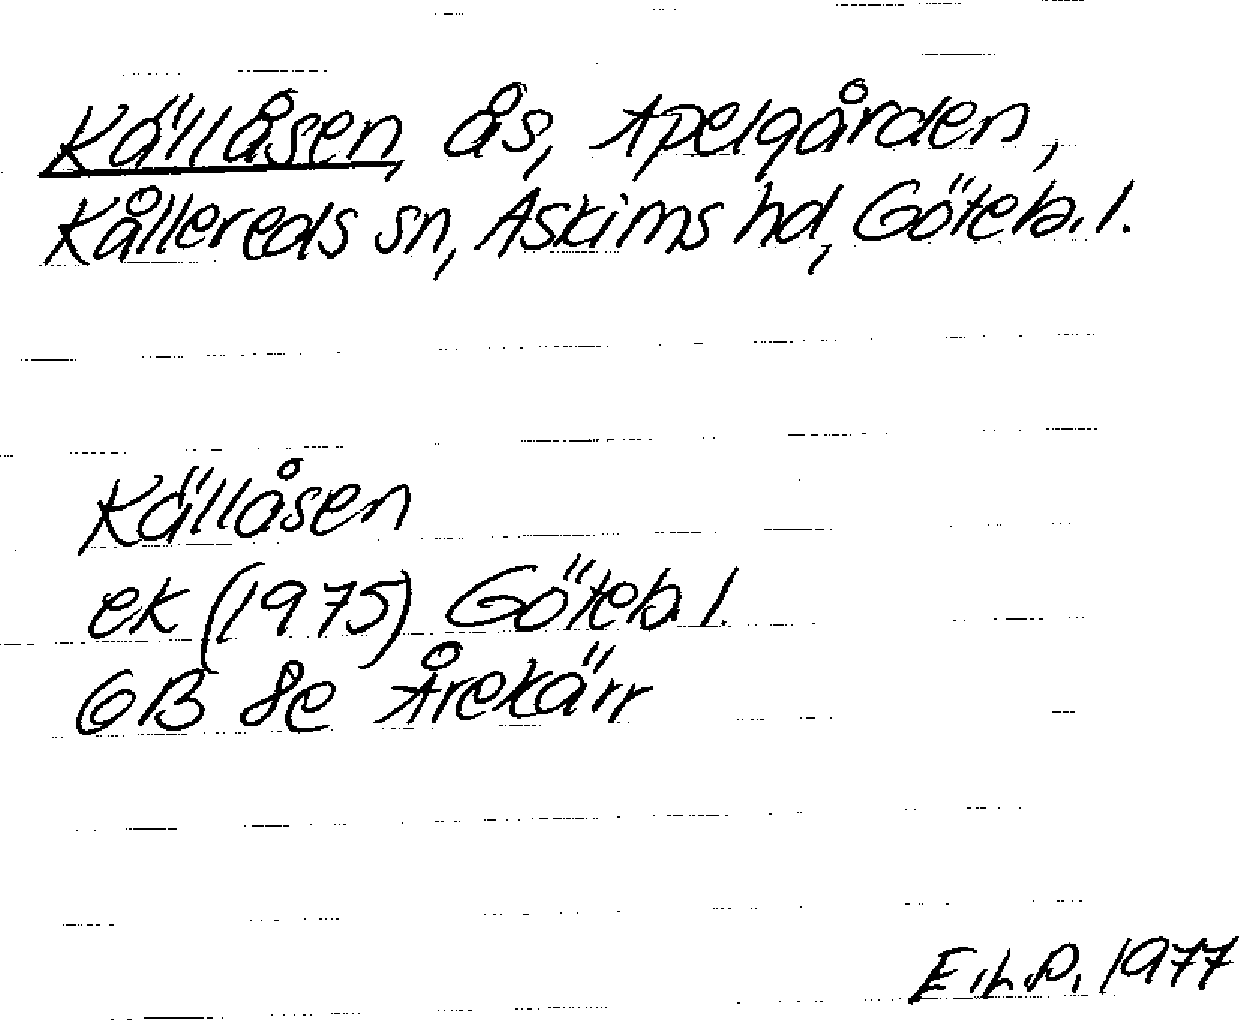 Källåsen, ås, Apelgården,
Kållereds sn, Askims hd, Göteb. l.
Källåsen
ek (1975) Göteb. l.
6B 8e Årekärr
E.L.P. 1977